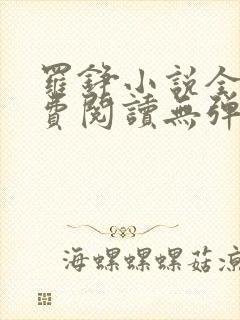 羅錚小說全
費閱讀無彈
海螺螺螺菇涼